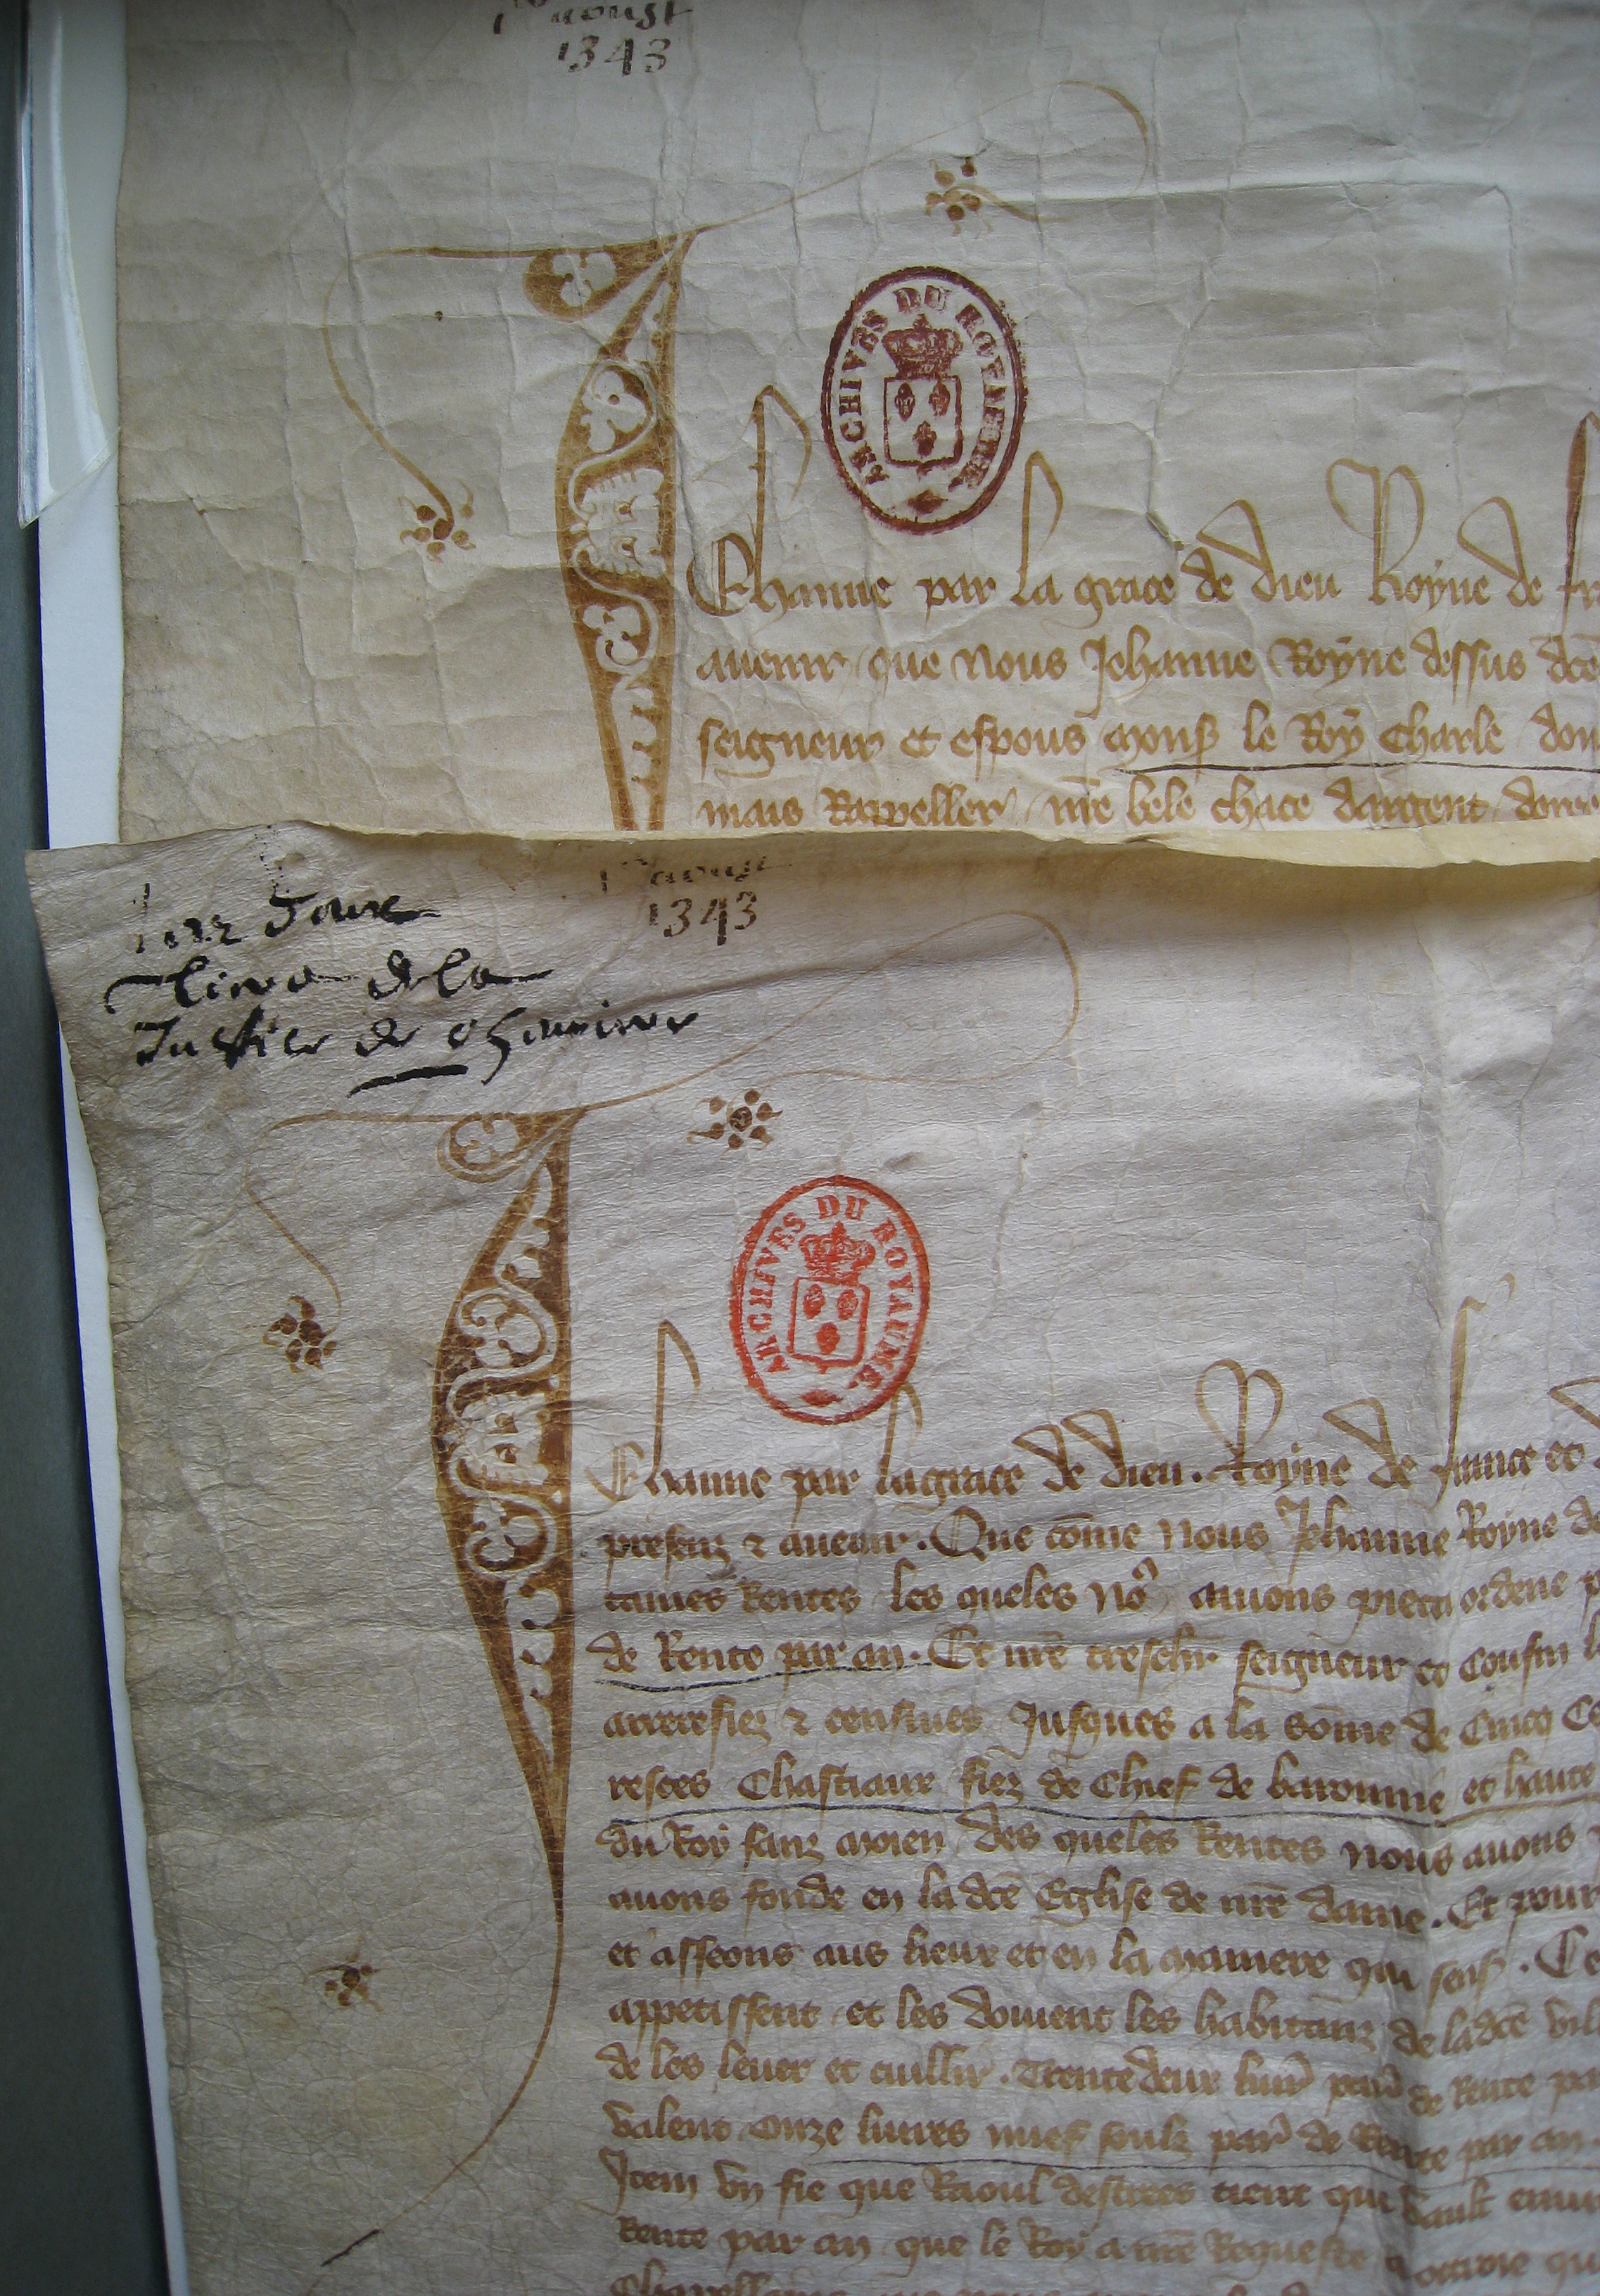 aoust
1343
ARCHIVES DU ROYAUME
Jehanne par la grace de dieu Royne de fr
auenir que Nous Jehanne Royne dessus dce
seigneur et espous mons le Roy Charle don
mais Rappeller nre bele chace dargent doree
aoust
1343
de la
Justice de
ARCHIVES DU ROYAUME.
Jehanne par la grace de dieu. Royne de france et
presenz & auenir. Que come Nous Jehanne Royne de
taines Rentes les queles No9 auons pieca ordene p
de Rente par an. Et nre treschr seigneur et Cousin l
arrerefiez & censiues Jusques a la Some de Cincq Ce
resces Chastiaux fiez de Chief de baronnie et haute
du Roy sanz moien des queles Rentes Nous auons
auons fonde en la dce Eglise de nre dame. Et pour
et asseons aus lieux et en la maniere qui sens. Ce
appetissent et les doiuent les habitanz de la dce vill
de les leuer et cuillir. Trente deux liur par de Rente pa
valent onze liures nuef soulz par de Rente par an.
Item vn fie que Raoul destrees tient qui vault
Rente par an que le Roy a nre Requeste